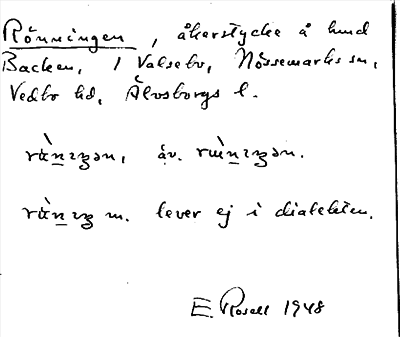 Rönningen, åkerstycke å hmd
Backen, 1 Valsebo, Nössemarks sn,
Vedbo hd, Älvsborgs l.
rὰn̲ɪŋən, äv. rɯ̀n̲ɪŋən.
rὰn̲ɪŋ m. lever ej i dialekten.
E. Rosell 1948